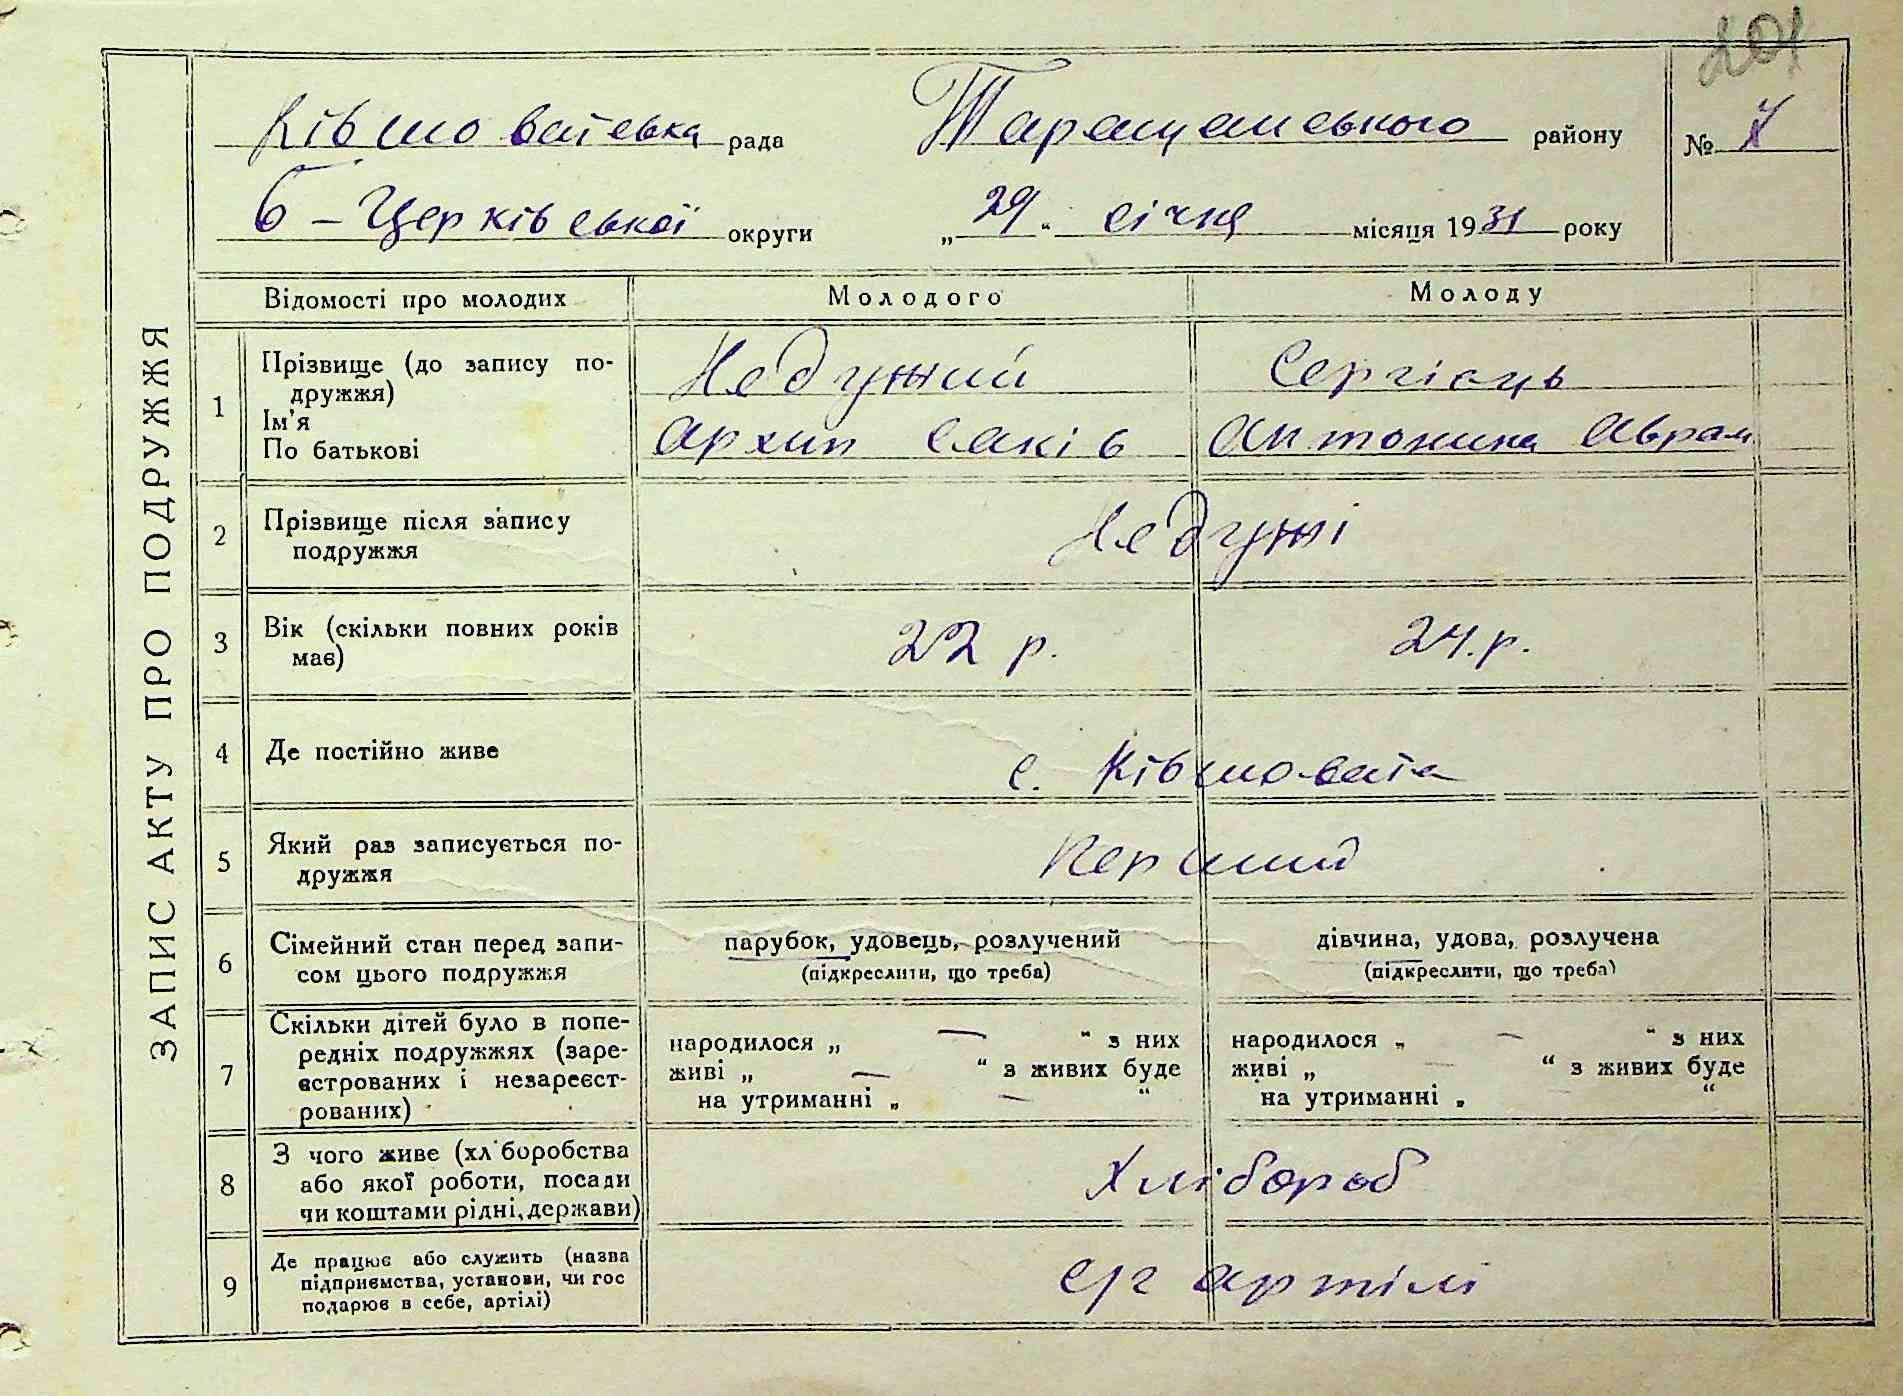 201
Ківшоватська рада Таращанського району № 7
Б-Церківської округи „29“ січня місяця 1931 року
ЗАПИС АКТУ ПРО ПОДРУЖЖЯ
Відомості про молодих Молодого Молоду
1 Прізвище (до запису по-
дружжя) Недужий Сергієць
Ім'я
По батькові Архип Яків Антонина Аврам
2 Прізвище після запису
подружжя Недужі
3 Вік (скільки повних років
має) 22 р. 24.р.
4 Де постійно живе с. Ківшовата
5 Який раз записується по-
дружжя Перший
6 Сімейний стан перед запи-
сом цього подружжя
парубок, удовець, розлучений
(підкреслити, що треба)
дівчина, удова, розлучена
(підкреслити, що треба)
7 Скільки дітей було в попе-
редніх подружжях (заре-
єстрованих і незареєст-
рованих)
народилося „ — “ з них
живі „ — “ з живих буде
на утриманні „ — “
народилося „ — “ з них
живі „ — “ з живих буде
на утриманні „ “
8 З чого живе (хл боробства
або якої роботи, посади
чи коштами рідні, держави)
Хлібороб
9 Де працює або служить (назва
підприємства, установи, чи гос
подарює в себе, артілі)
с/г артілі